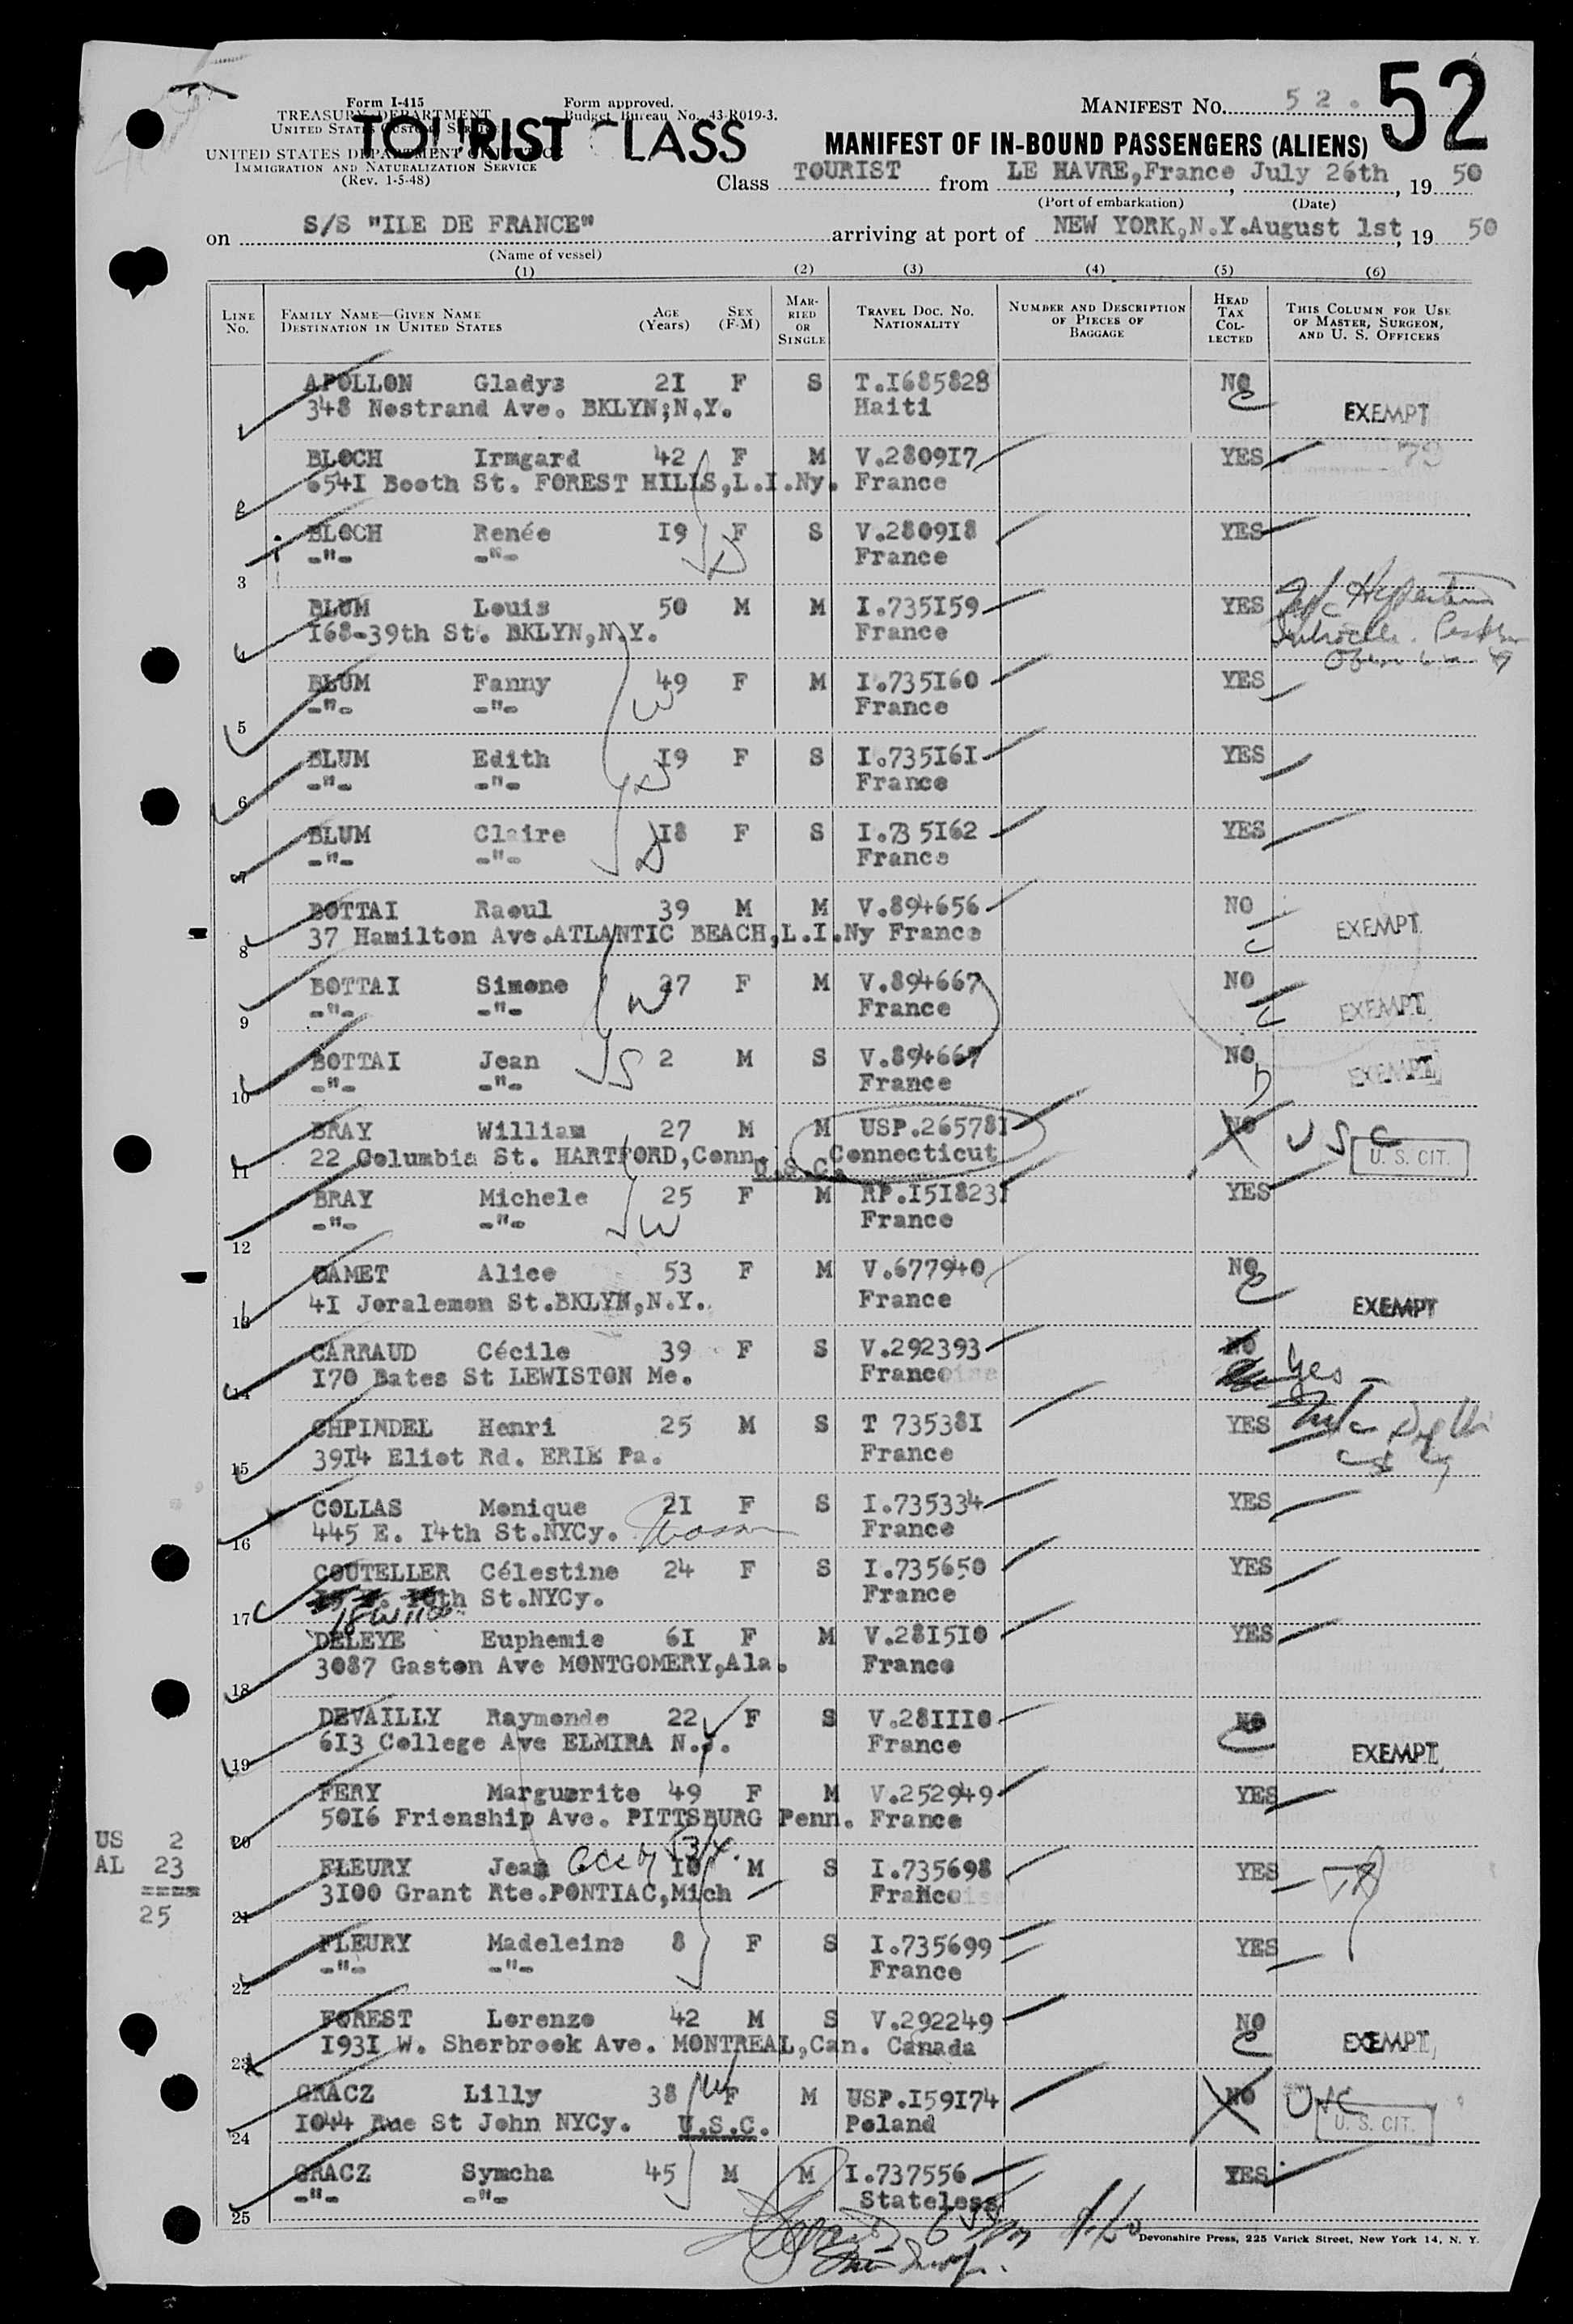 52
Form I-415
TREASURY DEPARTMENT
UNITED STATES CUSTOMS SERVICE
Form approved.
Budget Bureau No. 43-R019-3.
MANIFEST NO. 52.
TOURIST CLASS
UNITED STATES DEPARTMENT OF JUSTICE
IMMIGRATION AND NATURALIZATION SERVICE
(Rev. 1-5-48)
MANIFEST OF IN-BOUND PASSENGERS (ALIENS)
Class TOURIST from LE HAVRE, France July 26th, 19 50
(Port of embarkation) (Date)
on S/S "ILE DE FRANCE" arriving at port of NEW YORK, N.Y. August 1st, 19 50
(Name of vessel)
(1) (2) (3) (4) (5) (6)
LINE No. FAMILY NAME—GIVEN NAME DESTINATION IN UNITED STATES AGE (Years) SEX (F-M) MARRIED OR SINGLE TRAVEL DOC. NO. NATIONALITY NUMBER AND DESCRIPTION OF PIECES OF BAGGAGE HEAD TAX COLLECTED THIS COLUMN FOR USE OF MASTER, SURGEON, AND U. S. OFFICERS
APOLLON Gladys 2I F S T.I685828 NO
1 348 Nostrand Ave. BKLYN;N.Y. Haiti EXEMPT
BLOCH Irmgard 42 F M V.2809I7 YES
2 654I Booth St. FOREST HILLS,L.I.Ny. France
BLOCH Renée I9 F S V.2809I8 YES
3 -"- -"- France
BLUM Louis 50 M M I.735I59 YES
4 I68-39th St. BKLYN,N.Y. France
BLUM Fanny 49 F M I.735I60 YES
5 -"- -"- France
BLUM Edith I9 F S I.735I6I YES
6 -"- -"- France
BLUM Claire I8 F S I.735I62 YES
7 -"- -"- France
BOTTAI Raoul 39 M M V.894656 NO
8 37 Hamilton Ave.ATLANTIC BEACH,L.I.Ny France EXEMPT
BOTTAI Simone 27 F M V.894667 NO
9 -"- -"- France EXEMPT
BOTTAI Jean 2 M S V.894667 NO
10 -"- -"- France EXEMPT
BRAY William 27 M M USP.26578I NO USC
11 22 Columbia St. HARTFORD,Conn. U.S.C. Connecticut U. S. CIT.
BRAY Michele 25 F M RP.I5I823I YES
12 -"- -"- France
CAMET Alice 53 F M V.677940 NO
13 4I Joralemon St.BKLYN,N.Y. France EXEMPT
CARRAUD Cécile 39 F S V.292393 NO Yes
14 I70 Bates St LEWISTON Me. France
CHPINDEL Henri 25 M S T 73538I YES
15 39I4 Eliot Rd. ERIE Pa. France
COLLAS Monique 2I F S I.735334 YES
16 445 E. I4th St.NYCy. France
COUTELLER Célestine 24 F S I.735650 YES
17 St.NYCy. France
DELEYE Euphemie 6I F M V.28I5I0 YES
18 3087 Gaston Ave MONTGOMERY,Ala. France
DEVAILLY Raymonde 22 F S V.28III0 NO
19 6I3 College Ave ELMIRA N.Y. France EXEMPT
FERY Marguerite 49 F M V.252949 YES
20 50I6 Frienship Ave. PITTSBURG Penn. France
FLEURY Jean I0 M S I.735698 YES
21 3I00 Grant Rte.PONTIAC,Mich France
FLEURY Madeleine 8 F S I.735699 YES
22 -"- -"- France
FOREST Lorenzo 42 M S V.292249 NO
23 I93I W. Sherbrook Ave. MONTREAL,Can. Canada EXEMPT
GRACZ Lilly 38 F M USP.I59I74 NO USC
24 I044 Rue St John NYCy. U.S.C. Poland U. S. CIT.
GRACZ Symcha 45 M M I.737556 YES
25 -"- -"- Stateless
US 2
AL 23
====
25
Devonshire Press, 225 Varick Street, New York 14, N. Y.